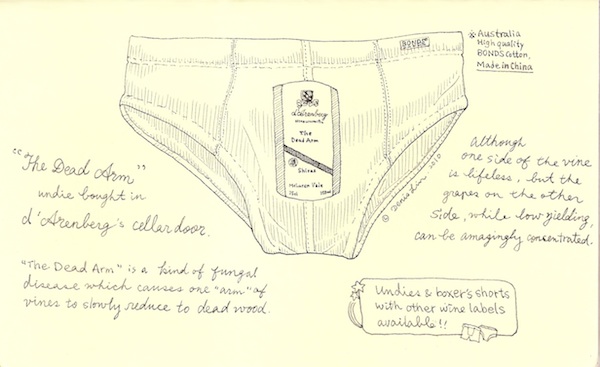 BONDS
※ Australia
High quality
BONDS Cotton,
Made in China
d'Arenberg
The
Dead Arm
Shiraz
McLaren Vale
"The Dead Arm"
undie bought in
d'Arenberg's cellar door.
"The Dead Arm" is a kind of fungal
disease which causes one "arm" of
vines to slowly reduce to dead wood.
Although
one side of the vine
is lifeless, but the
grapes on the other
side, while low yielding,
can be amazingly concentrated.
©
2010
Undies & boxer's shorts
with other wine labels
available!!